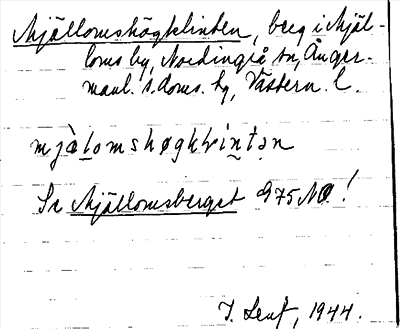 Mjällomshögklinten, berg i Mjäl-
loms by, Nordingrå sn, Ånger-
manl. s. doms. tg, Västern. l.
mjàlomshøgklintən
Se Mjällomsberget 975 NO!
1944.